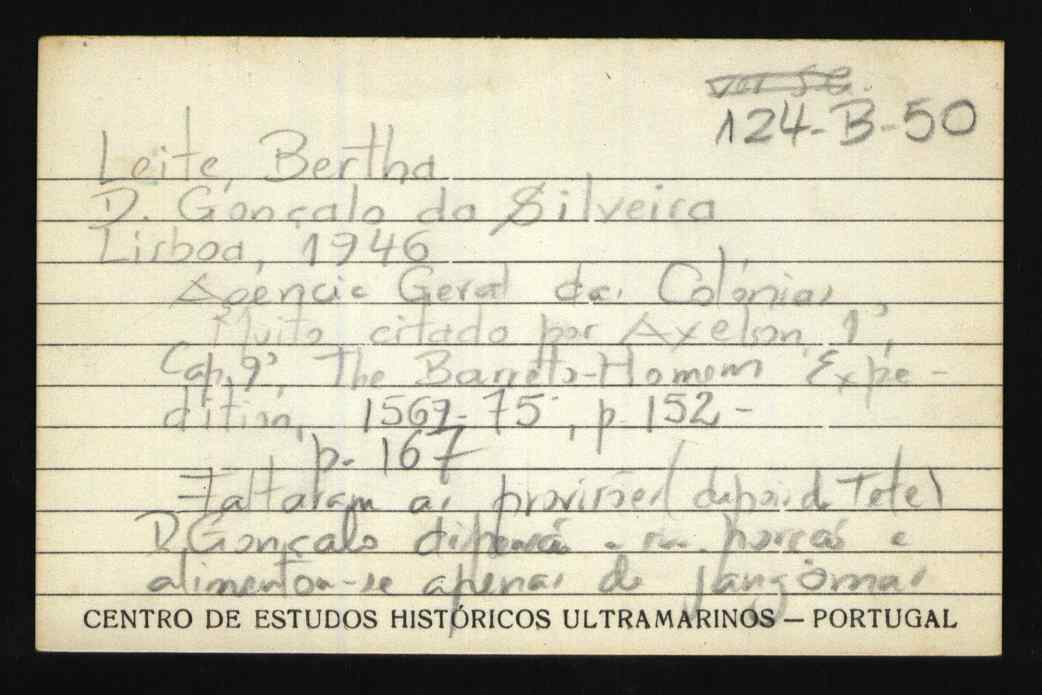 124-B-50
Leite, Bertha
D. Gonçalo da Silveira
Lisboa, 1946
Agencia Geral das Colónias,
Muito citado por Axelson, 1º,
Cap. 9º, The Barreto-Homem Expe-
dition, 1569-75, p. 152-
p. 167
Faltaram as provisões (depois de Tete)
D. Gonçalo a sua porção e
alimentou-se apenas de
CENTRO DE ESTUDOS HISTÓRICOS ULTRAMARINOS — PORTUGAL